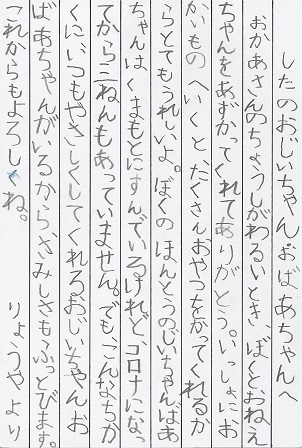 したのおじいちゃん、おばあちゃんへ
おかあさんのちょうしがわるいとき、ぼくとおねえ
ちゃんをあずかってくれてありがとう。いっしょにお
かいものへいくと、たくさんおやつをかってくれるか
らとてもうれしいよ。ぼくのほんとうのじいちゃんばあ
ちゃんはくまもとにすんでいる。けれど、コロナになっ
てから二ねんもあっていません。でも、こんなちか
くにいつもやさしくしてくれるおじいちゃんお
ばあちゃんがいるから、さみしさもふっとびます。
これからもよろしくね。
りょうやより